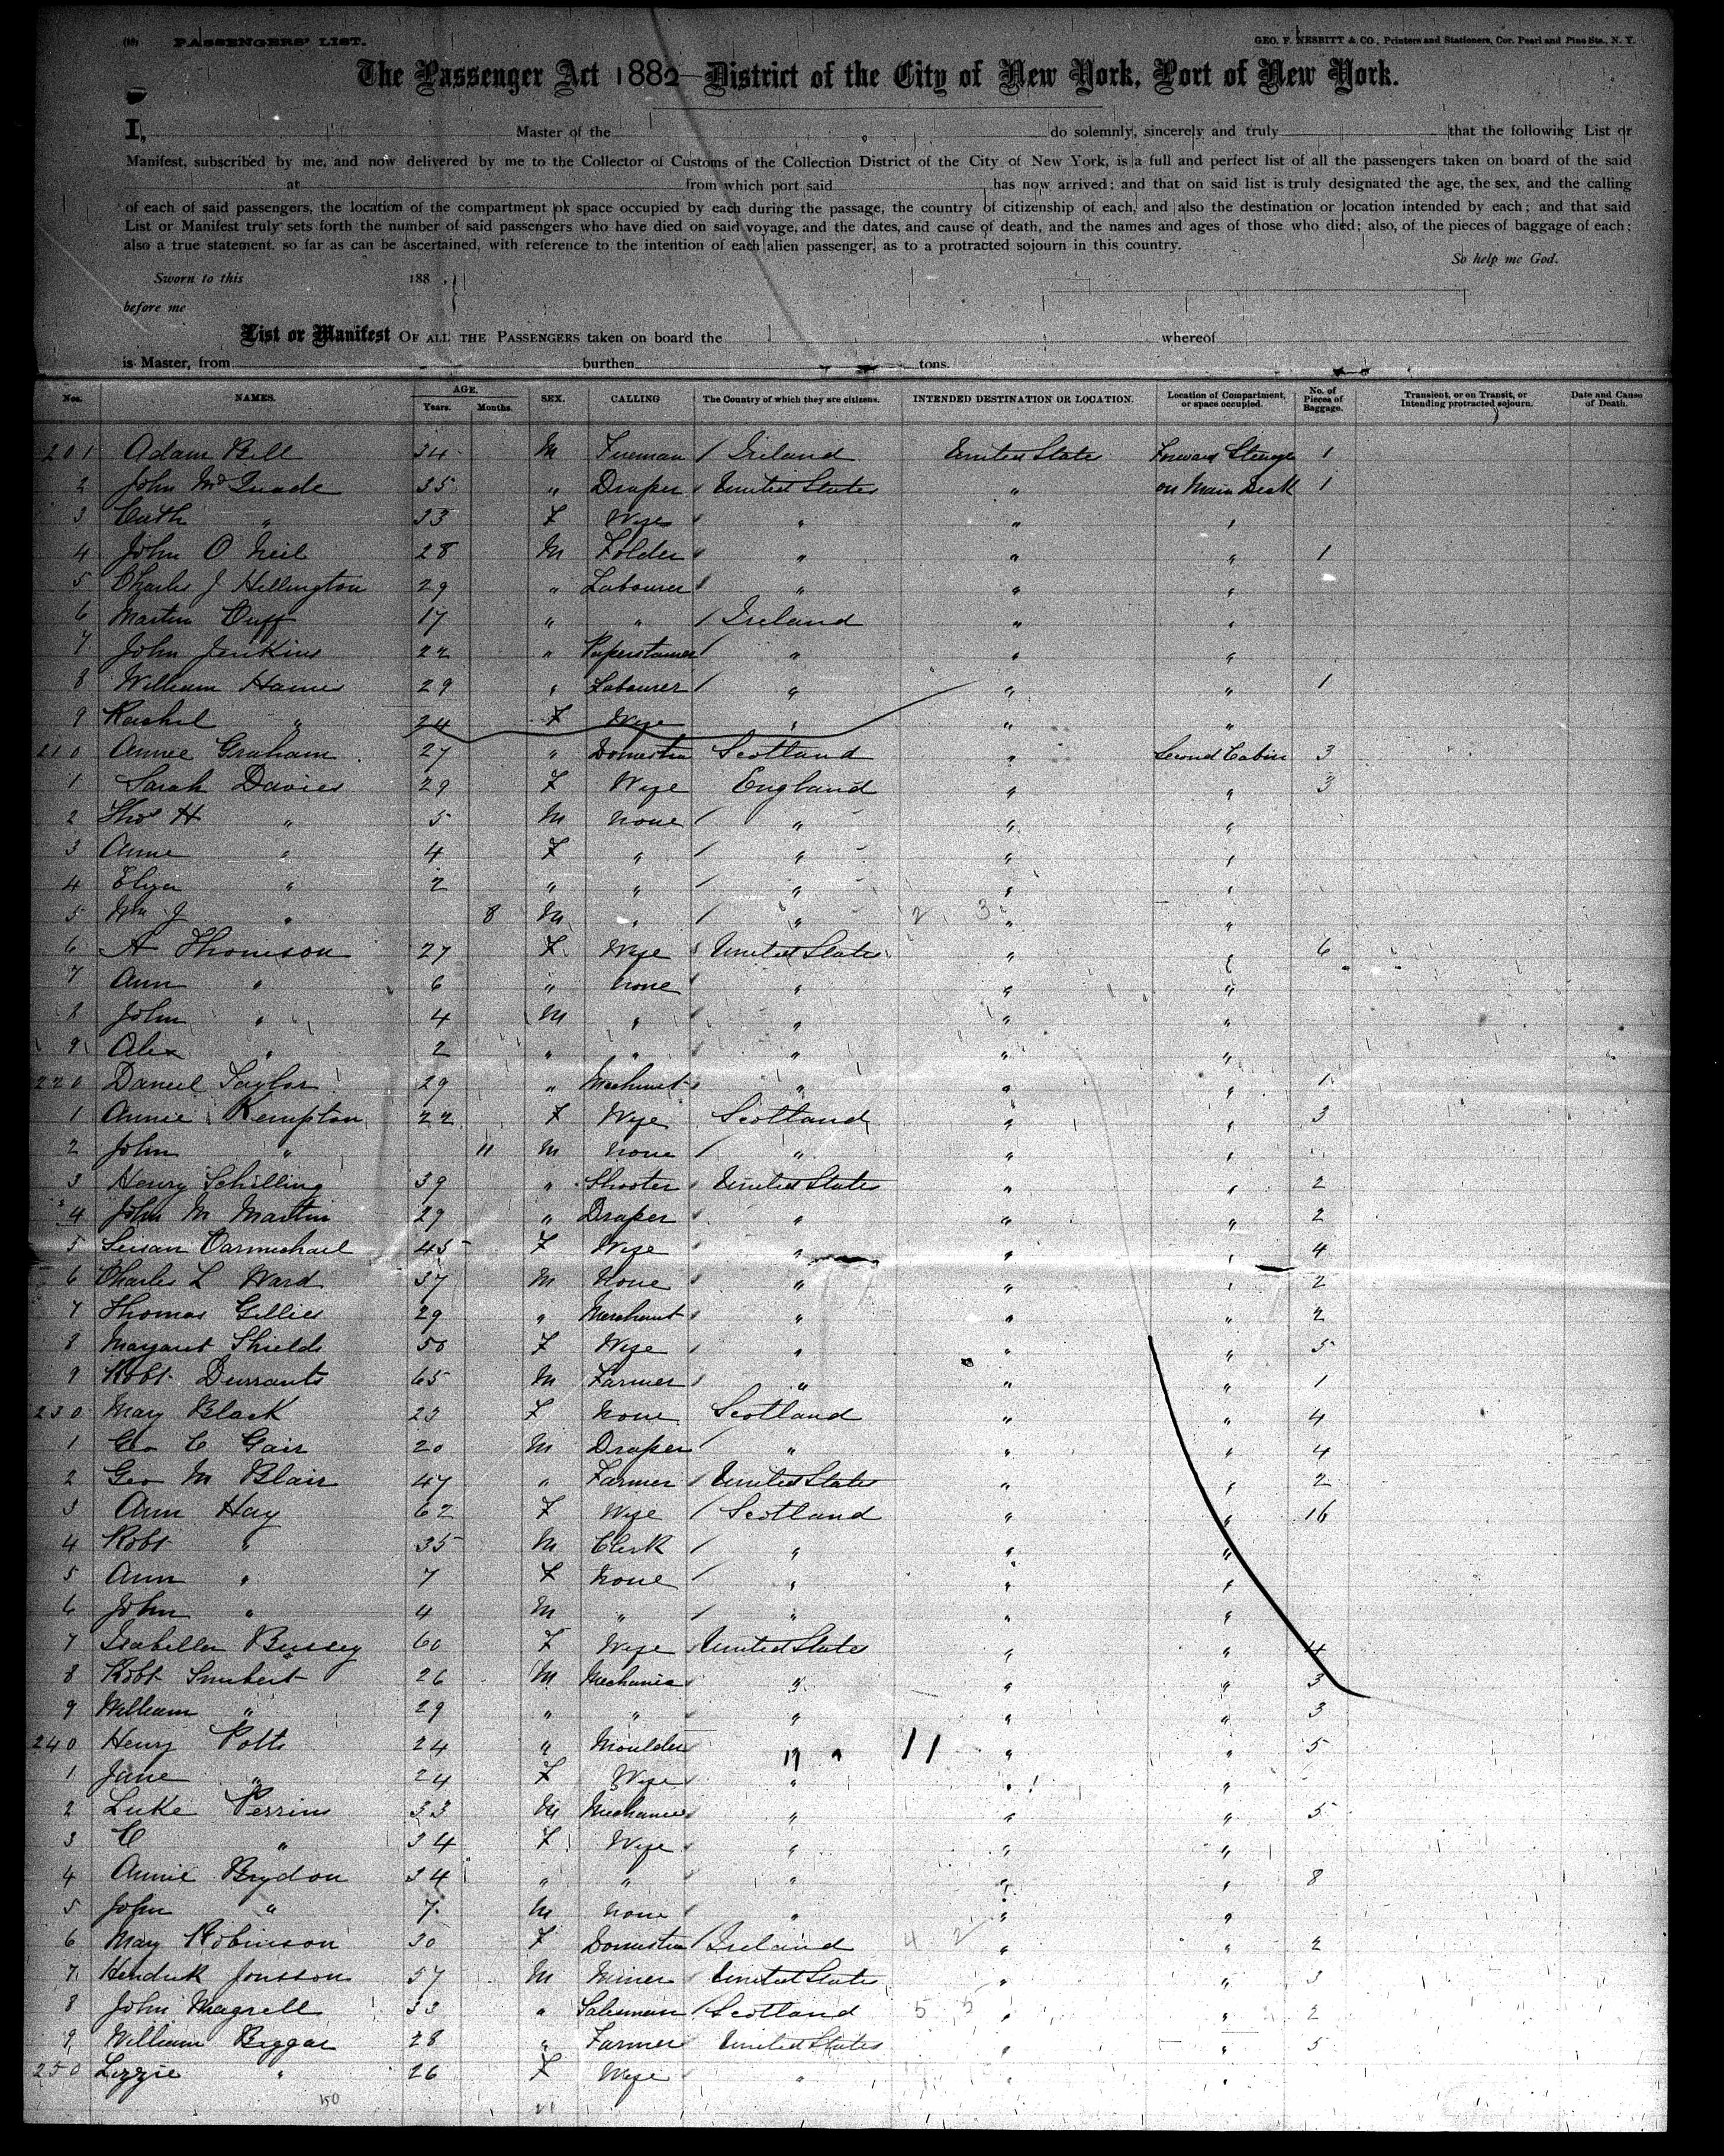 (16) PASSENGERS' LIST. GEO. F. NESBITT & CO., Printers and Stationers, Cor. Pearl and Pine Sts., N. Y.
The Passenger Act 1882 District of the City of New York, Port of New York.
I, Master of the do solemnly, sincerely and truly that the following List or
Manifest, subscribed by me, and now delivered by me to the Collector of Customs of the Collection District of the City of New York, is a full and perfect list of all the passengers taken on board of the said
at from which port said has now arrived; and that on said list is truly designated the age, the sex, and the calling
of each of said passengers, the location of the compartment or space occupied by each during the passage, the country of citizenship of each, and also the destination or location intended by each; and that said
List or Manifest truly sets forth the number of said passengers who have died on said voyage, and the dates, and cause of death, and the names and ages of those who died; also, of the pieces of baggage of each;
also a true statement, so far as can be ascertained, with reference to the intention of each alien passenger, as to a protracted sojourn in this country.
So help me God.
Sworn to this 188 .}
before me
List or Manifest OF ALL THE PASSENGERS taken on board the whereof
is Master, from burthen tons.
Nos. NAMES. AGE. Years. Months. SEX. CALLING The Country of which they are citizens. INTENDED DESTINATION OR LOCATION. Location of Compartment, or space occupied. No. of Pieces of Baggage. Transient, or on Transit, or Intending protracted sojourn. Date and Cause of Death.
201 Adam Bell 34 M Fireman / Ireland United State Forward Steerage 1
2 John McQuade 35 " Draper United States " on Main Deck 1
3 Cath " 33 F Wife " " "
4 John O Neil 28 M Folder " " " 1
5 Charles J Hellington 29 " Labourer " " "
6 Martin Cuff 17 " " / Ireland " "
7 John Jenkins 22 " Paperstainer / " " "
8 William Hames 29 " Labourer / " " " 1
9 Rachel " 24 F Wife " " "
210 Annie Graham 27 " Domestic Scotland " Second Cabin 3
1 Sarah Davies 29 F Wife England " " 3
2 Thos H " 5 M None / " " "
3 Anne " 4 F " / " " "
4 Eliza " 2 " " / " " "
5 Wm J " 8 M " / " 2 3 " "
6 A Thomson 27 F Wife United States " " 6
7 Ann " 6 " None " " "
8 John " 4 M " " " "
9 Alex " 2 " " " " "
220 Daniel Taylor 29 " Mechanist " " " 1
1 Annie Kempton 22 F Wife Scotland " " 3
2 John " 11 M None / " " "
3 Henry Schilling 39 " Shooter United States " " 2
4 John M Martin 29 " Draper " " " 2
5 Susan Carmichael 45 F Wife " " " 4
6 Charles L Ward 37 M None " " " 2
7 Thomas Gillies 29 " Merchant " " " 2
8 Margaret Shields 50 F Wife " " " 5
9 Robt Durrants 65 M Farmer " " " 1
230 Mary Black 23 F None Scotland " " 4
1 Geo C Gair 20 M Draper / " " " 4
2 Geo M Blair 47 " Farmer United States " " 2
3 Ann Hay 62 F Wife / Scotland " " 16
4 Robt " 35 M Clerk / " " "
5 Ann " 7 F None / " " "
6 John " 4 M " / " " "
7 Isabella Bussey 60 F Wife United States " " 4
8 Robt 26 M Mechanic " " " 3
9 William " 29 " " " " " 3
240 Henry Potts 24 " Moulder " 11 " " 5
1 Jane " 24 F Wife " " "
2 Luke Perrins 33 M Mechanic " " " 5
3 C " 34 F Wife " " "
4 Annie Brydon 34 " " " " " 8
5 John " 7 M None " " "
6 Mary Robinson 30 F Domestic / Ireland 4 2 " " 2
7 Hendrik Jonsson 57 M Miner United States " " 3
8 John Magrell 33 " Salesman / Scotland 5 5 " " 2
9 William Biggar 28 " Farmer United States " " 5
250 Lizzie " 26 F Wife " " "
150